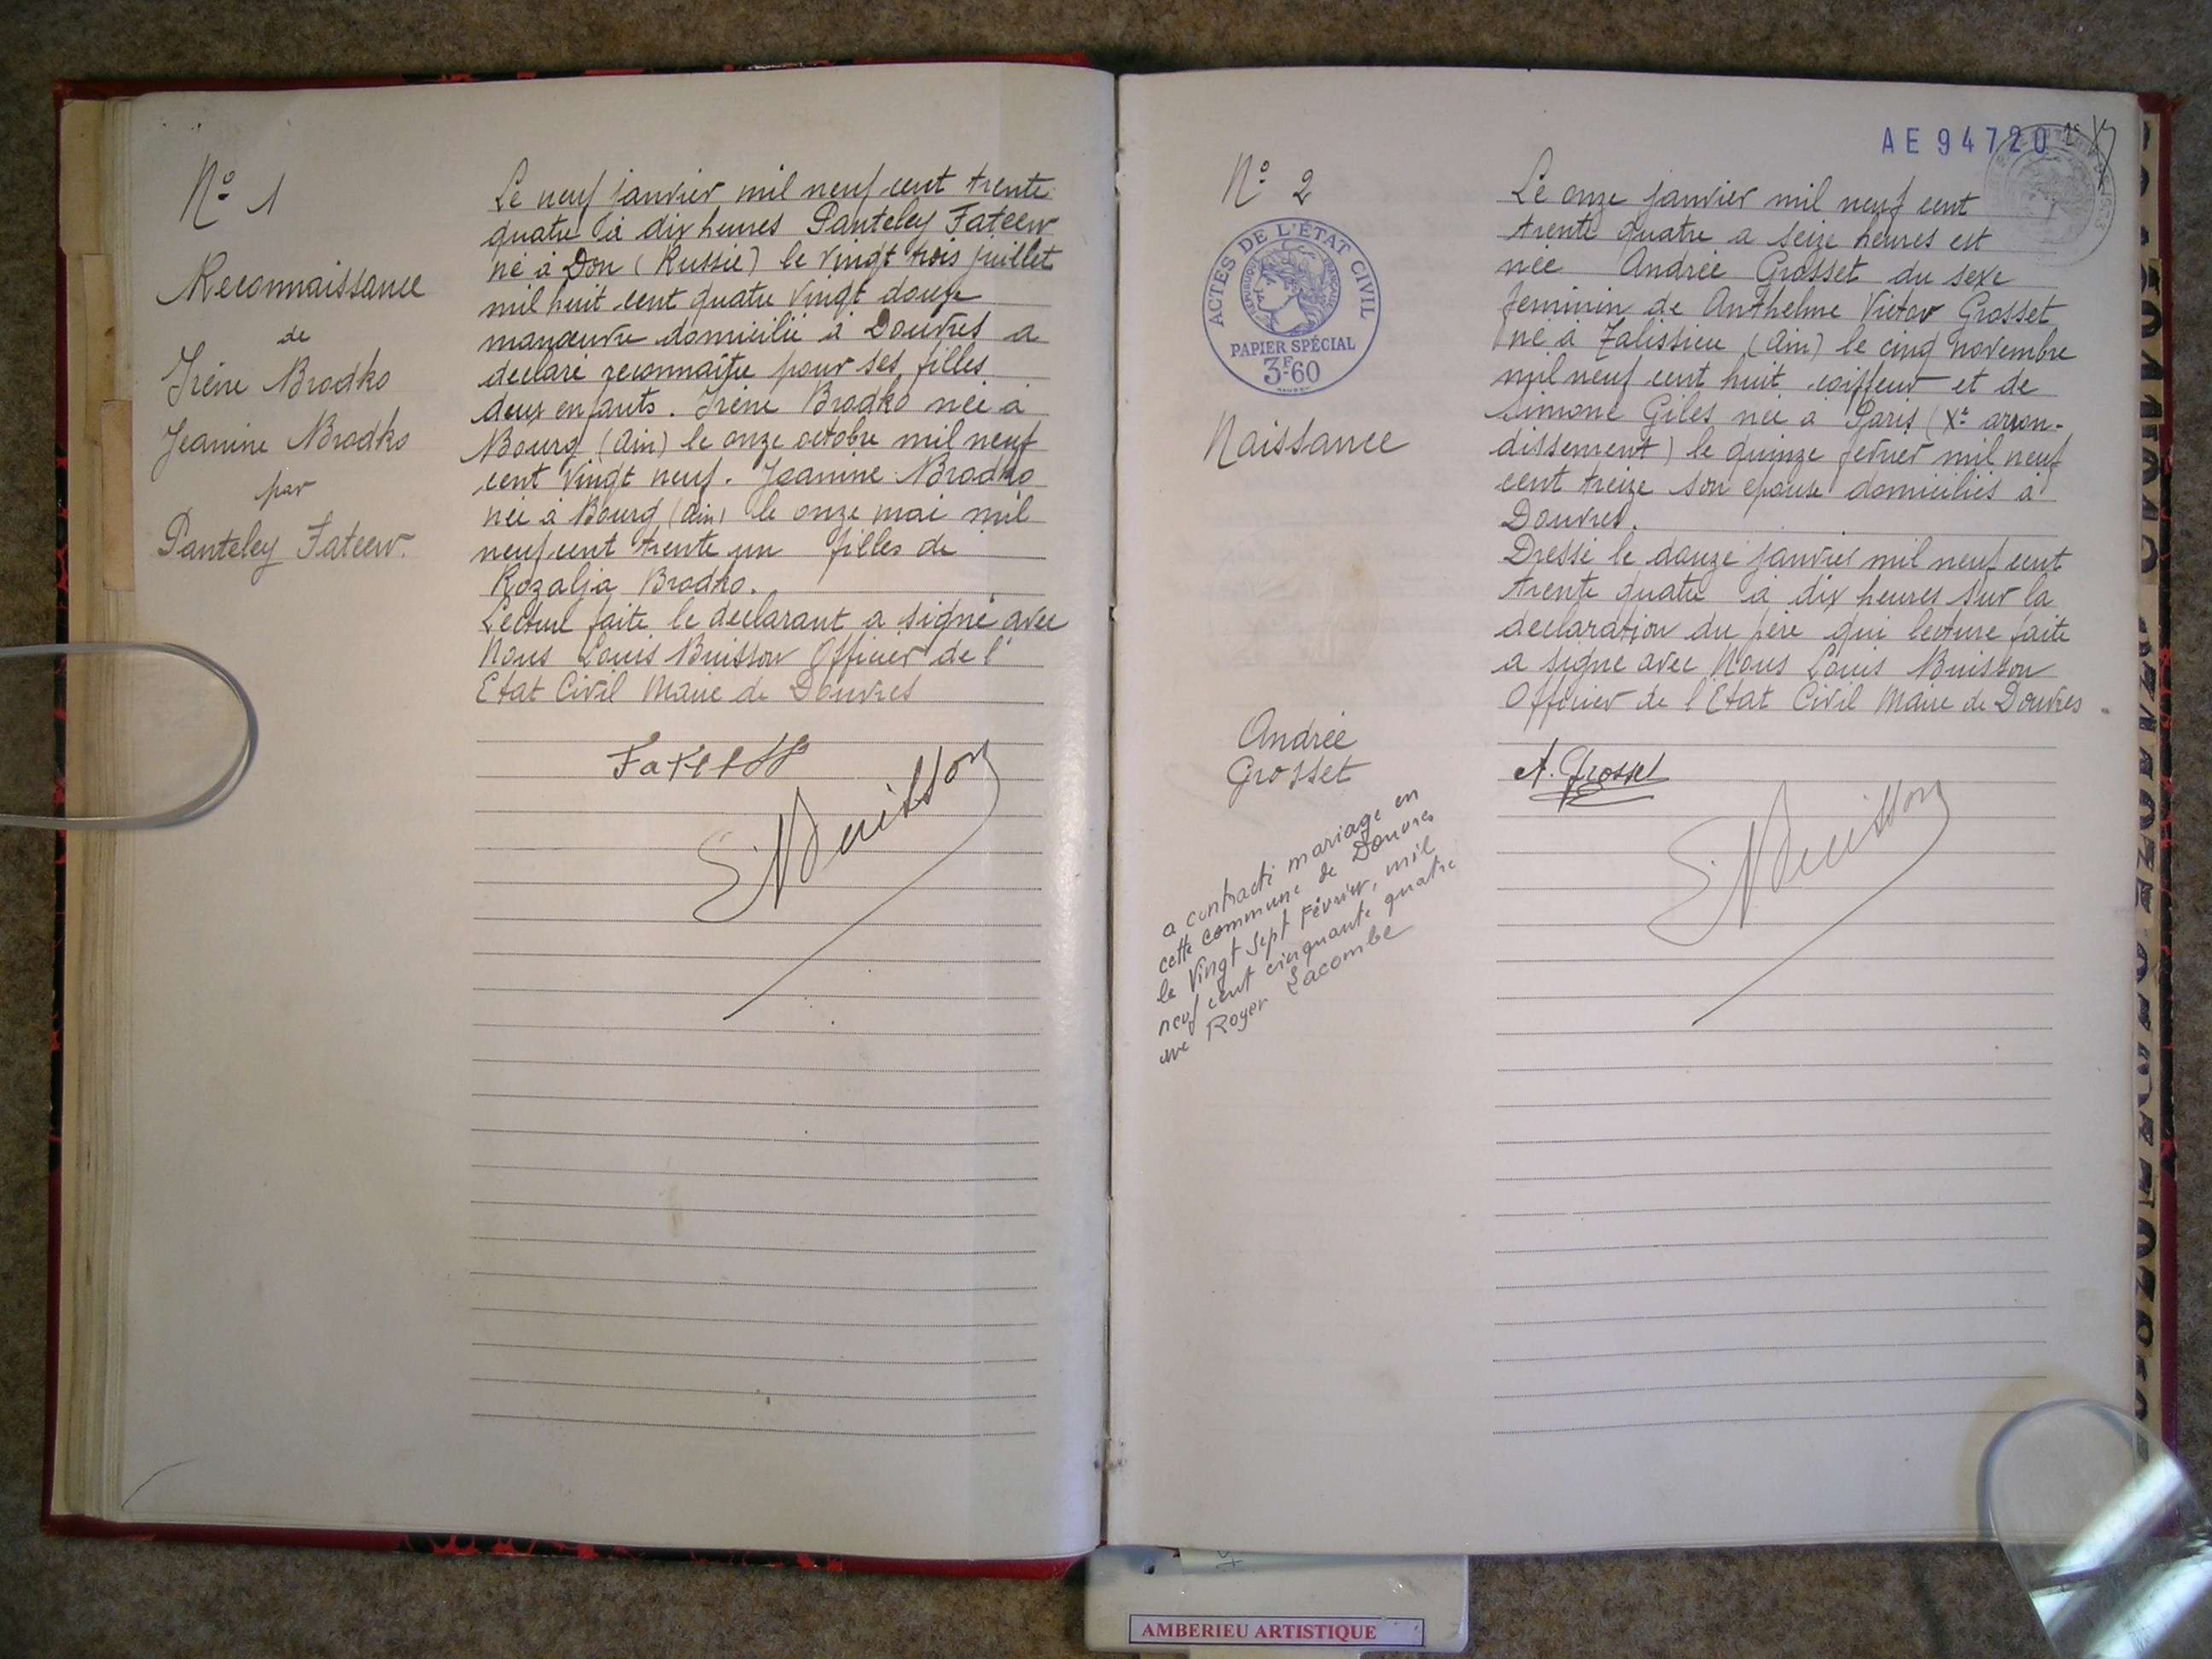 N° 1
Reconnaissance
de
Irène Brodko
Jeanine Brodko
par
Panteley Fateew.
Le neuf janvier mil neuf cent trente
quatre à dix heures Panteley Fateew
né à Don (Russie) le vingt trois juillet
mil huit cent quatre vingt douze
manœuvre domicilié à Douvres a
declaré reconnaître pour ses filles
deux enfants. Irène Brodko née à
Bourg (Ain) le onze octobre mil neuf
cent vingt neuf. Jeanine Brodko
née à Bourg (Ain) le onze mai mil
neuf cent trente un filles de
Rozalja Brodko.
Lecture faite le declarant a signé avec
Nous Louis Buisson Officier de l'
Etat Civil Maire de Douvres
L. Buisson
AE 94720
N° 2
ACTES DE L'ÉTAT CIVIL
RÉPUBLIQUE FRANÇAISE
PAPIER SPÉCIAL
3F60
Naissance
Andrée
Grosset
a contracté mariage en
cette commune de Douvres
le vingt sept Février, mil
neuf cent cinquante quatre
avec Roger Lacombe
Le onze janvier mil neuf cent
trente quatre a seize heures est
née Andrée Grosset du sexe
feminin de Anthelme Victor Grosset
né à Talissieu (Ain) le cinq novembre
mil neuf cent huit coiffeur et de
Simone Giles née à Paris (Xe arron-
dissement) le quinze fevrier mil neuf
cent treize son epouse domiciliés à
Douvres.
Dressé le douze janvier mil neuf cent
trente quatre à dix heures sur la
declaration du père qui lecture faite
a signé avec Nous Louis Buisson
Officier de l'Etat Civil Maire de Douvres.
A. Grosset
L. Buisson
AMBERIEU ARTISTIQUE